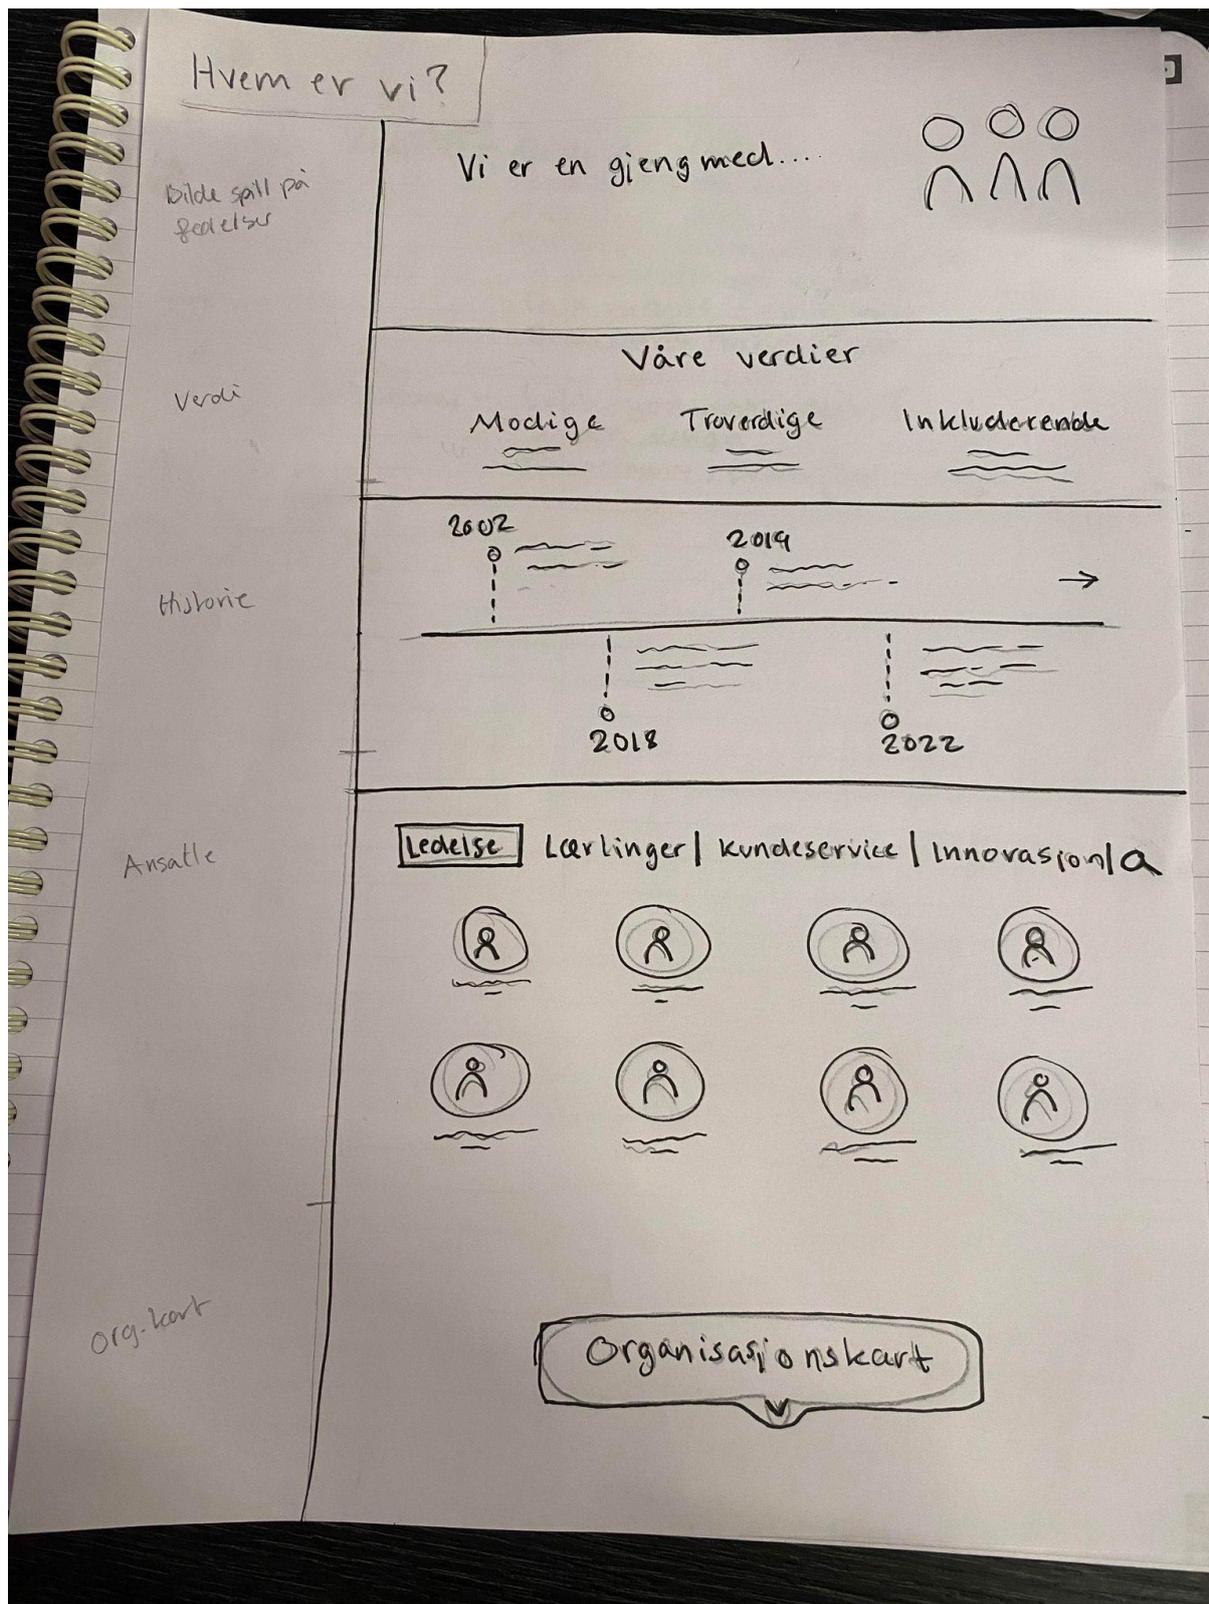 Hvem er vi?
Bilde spill på
Vi er en gjeng med....
Våre verdier
Verdi
Modige Troverdige Inkluderende
2002
2019
Historie
2018
2022
Ansatte
Ledelse Lærlinger | Kundeservice | Innovasjon |
Org.kart
Organisasjonskart